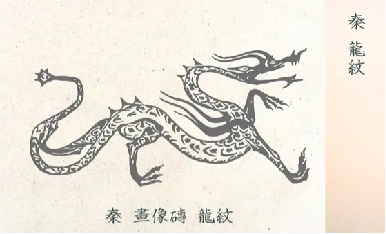 秦 龍紋
秦 畫像磚 龍紋